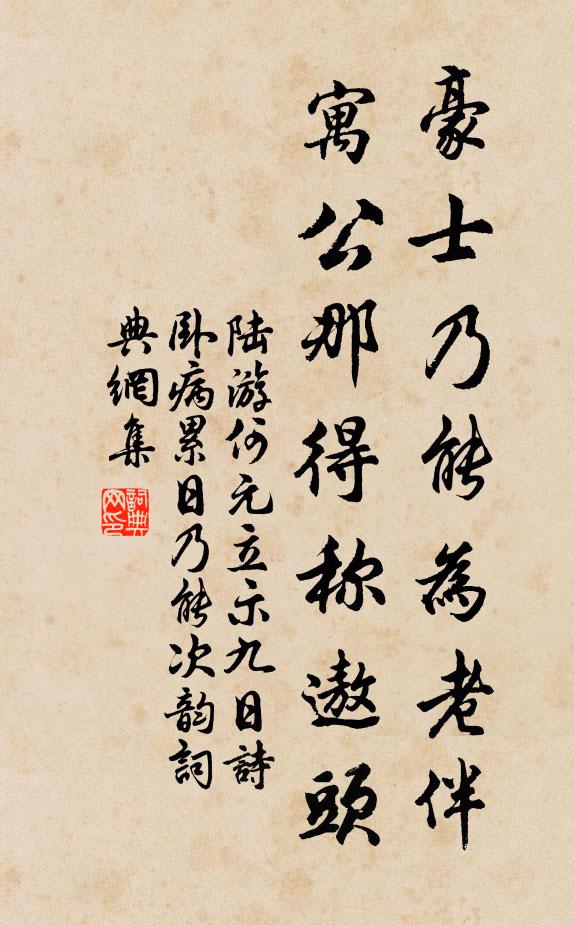 豪士乃能為老伴
寓公那得称遨頭
陆游何元立示九日詩
卧病累日乃能次韵詞
典網集
詞典网印